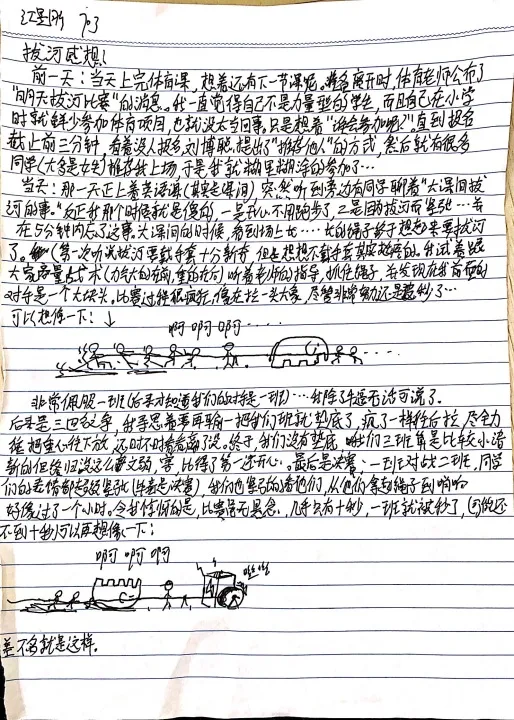 703
拔河感想!
前一天:当天上完体育课,想着还有下一节课呢。准备离开时,体育老师公布了
"明天拔河比赛"的消息。我一直觉得自己不是力量型的学生,而且自己在小学
时就鲜少参加体育项目,也就没太当回事。只是想着"谁会参加呢?"直到报名
截止前三分钟,看着没人报名刘博聪提出了"推荐他人"的方式,然后就有很多
同学(大多是女生)推荐我上场,于是我就糊里糊涂的参加了…
当天:那一天正上着英语课(其实是课间)突然听到旁边有同学聊着"大课间拔
河的事。"反正我那个时候就是傻的,一是开心不用跑步了,二是因为拔河而紧张…
在5分钟内忘了这事。大课间的时候,看到场上长…长的绳子终于想起来要拔河
了。(第一次听说拔河要戴手套十分新奇,但是想想不戴手套其实挺疼的。我试着跟
大家商量战术(力气大的在前,重的在后)听着老师的指导,抓住绳子,并发现在我前面的
对手是一个大块头,比赛过程很疯狂,像在拉一头大象,尽管非常努力还是被秒了…
可以想像一下:↓
啊啊啊····
非常佩服一班(后来才知道我们的对手是一班)…我除了牛逼无话可说了。
后来是三四名之争,我寻思着要再输一把我们班就垫底了,疯了一样往后拉,尽全力
往把重心往下放,还时不时看看赢了没。终于,我们没有垫底,
新的但终归没这么文弱,害,比得了第一还开心。最后是决赛、一班对战二班,同学
们的表情都超级紧张(毕竟是决赛),我们也紧张的看他们,从他们拿起绳子到响哨
好像过了一个小时。令我惊讶的是,比赛毫无悬念,几乎只有十秒,一班就被秒了,(可能还
不到十秒)可以再想像一下:
啊啊啊
差不多就是这样。